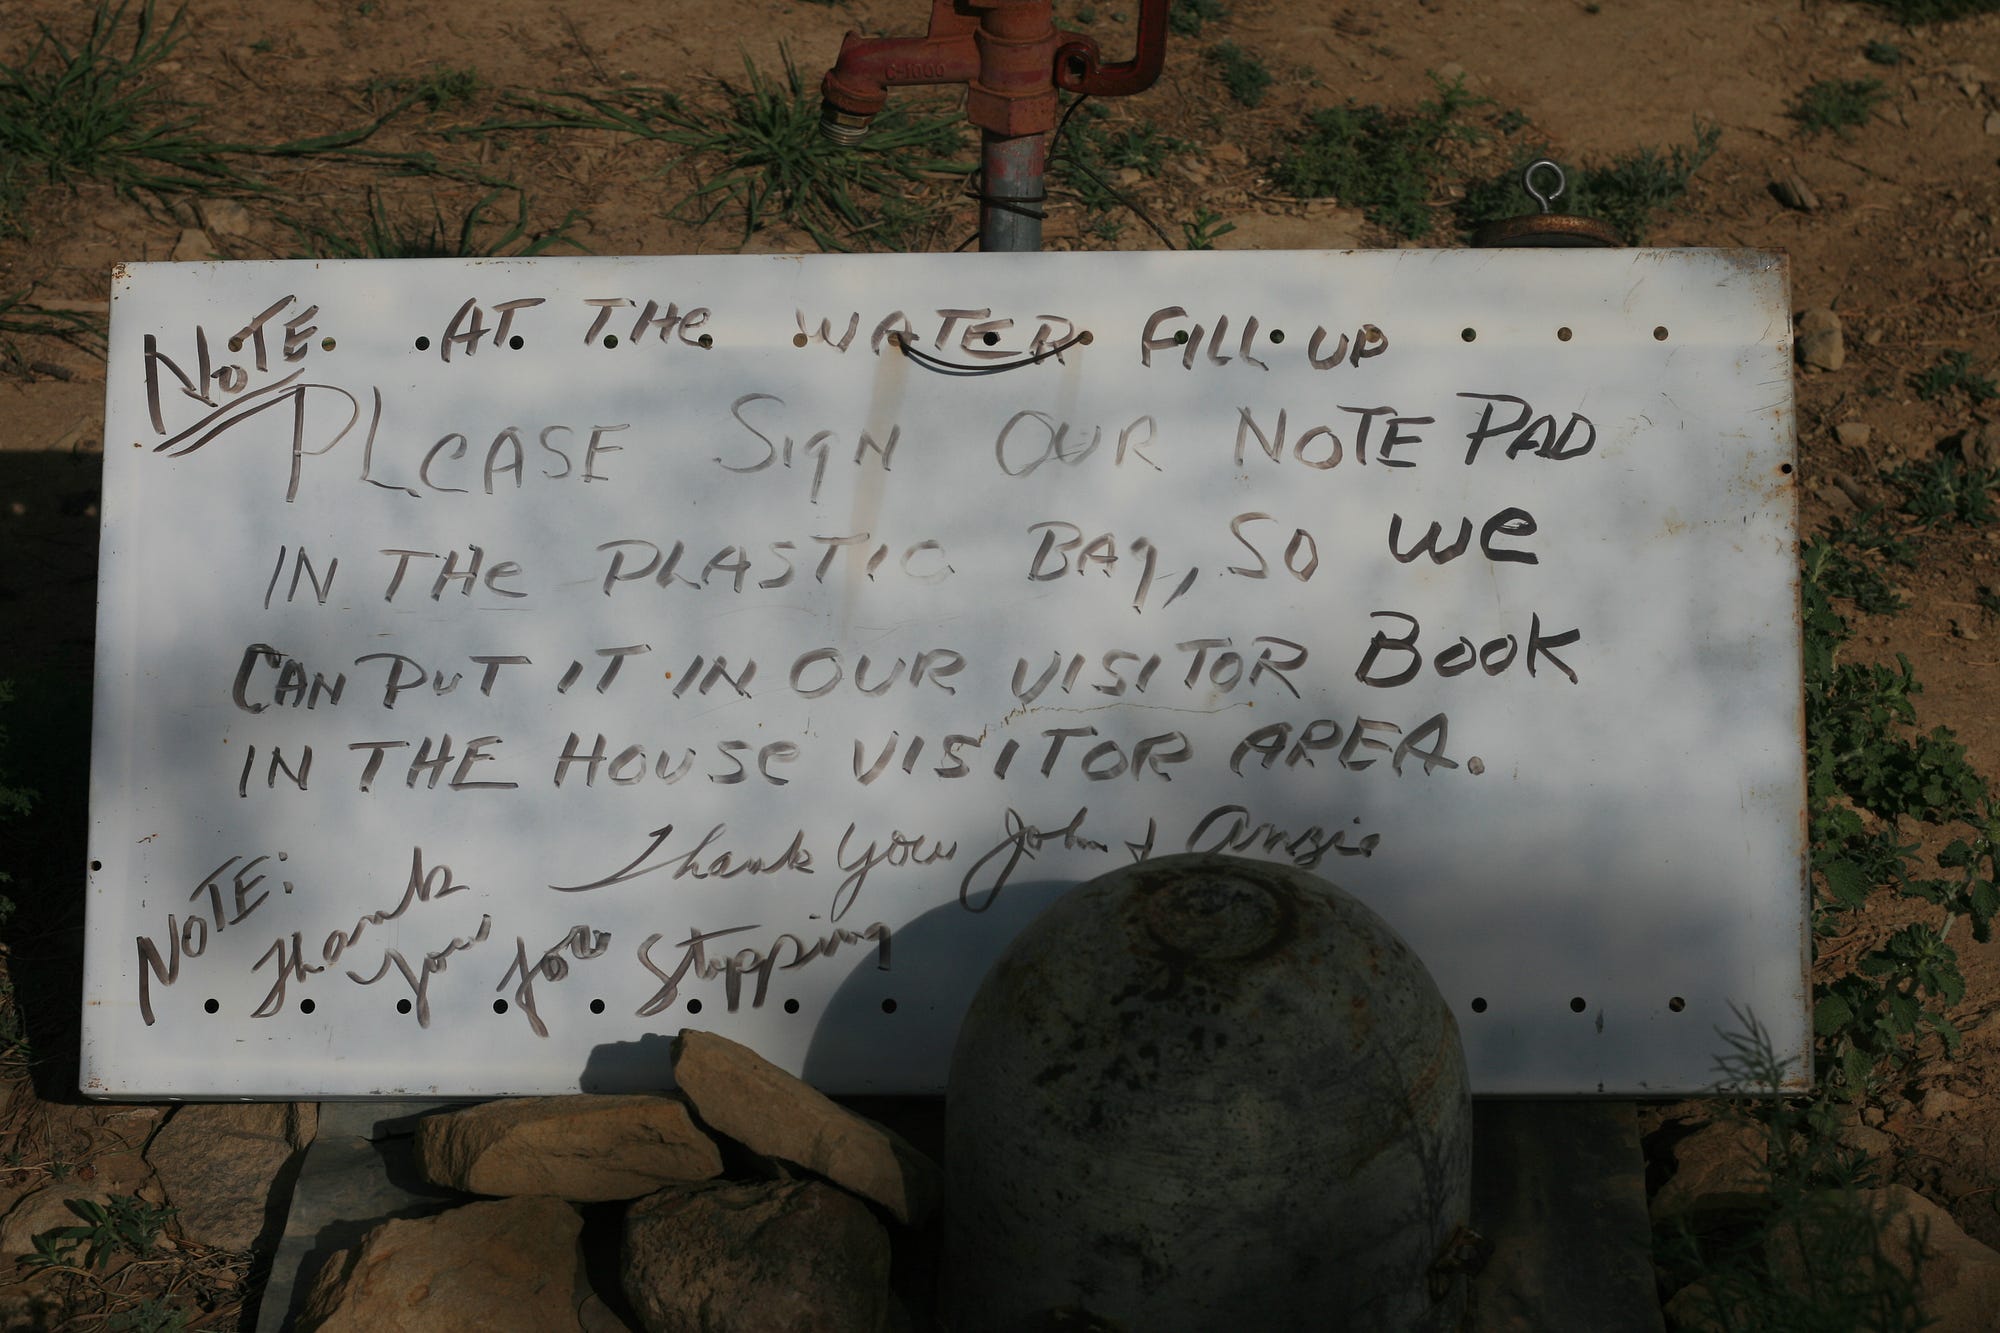 C-1000
NOTE AT THE WATER FILL UP
PLEASE SIGN OUR NOTE PAD
IN THE PLASTIC BAG, SO WE
CAN PUT IT IN OUR VISITOR BOOK
IN THE HOUSE VISITOR AREA.
Thank You John & Anzie
NOTE: Thank you for Stopping